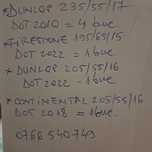 * DUNLOP 235/55/17
DOT 2010 = 4 buc
* FIRESTONE 195/65/15
DOT 2022 = 1 buc
* DUNLOP 205/55/16
DOT 2022 - 1 buc
* CONTINENTAL 205/55/16
DOT 2018 = 1 buc.
0766 540749